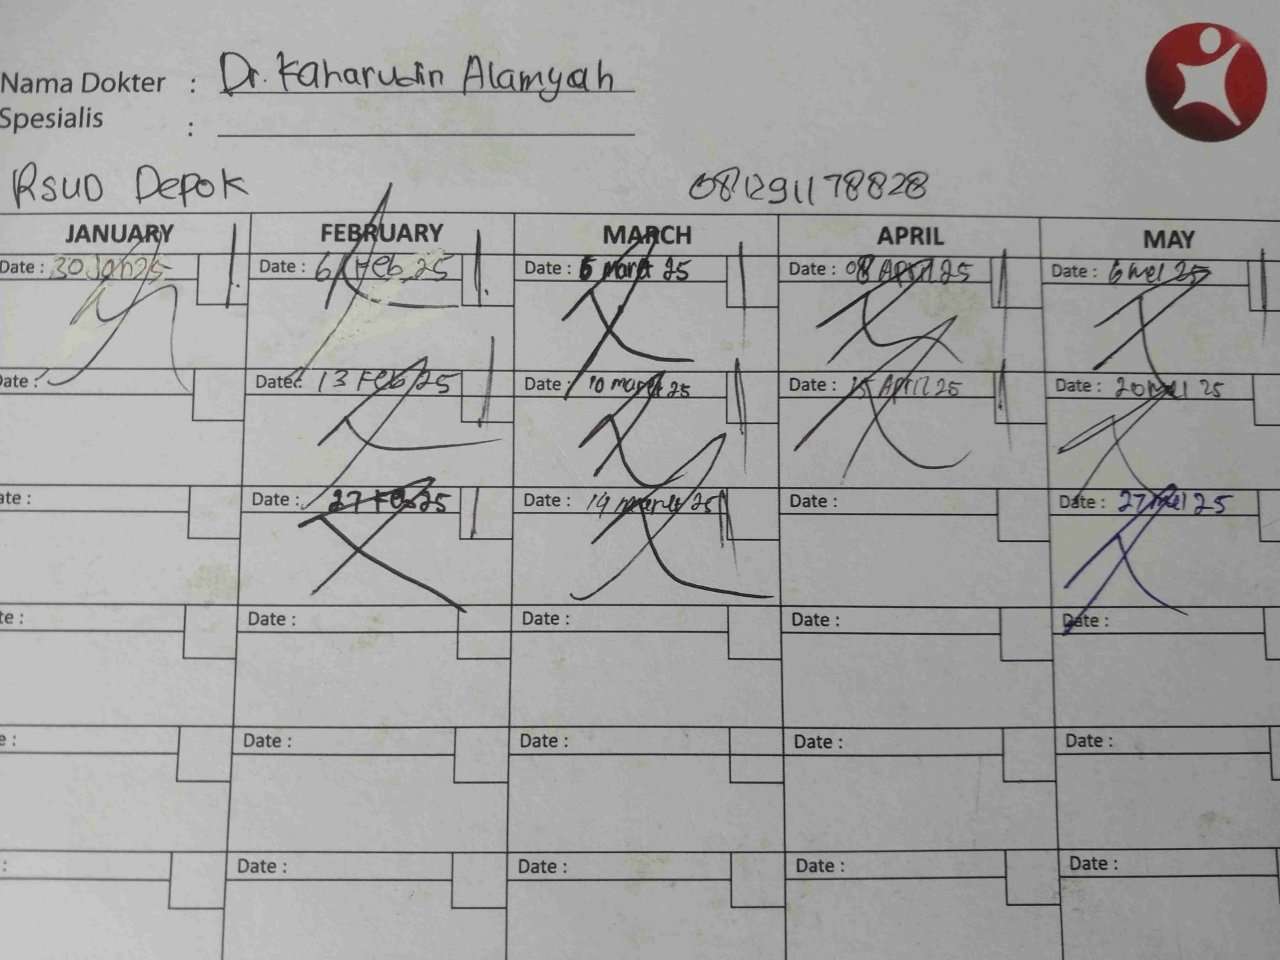 Nama Dokter : Dr. Kaharudin Alamyah
Spesialis :
RSUD Depok 081291178828
JANUARY FEBRUARY MARCH APRIL MAY
Date : 30 Jan 25 Date : 6 Feb 25 Date : 5 maret 25 Date : 08 April 25 Date : 6 mei 25
Date : Date : 13 Feb 25 Date : 10 maret 25 Date : 15 April 25 Date : 20 mei 25
ate : Date : 27 Feb 25 Date : 19 maret 25 Date : Date : 27 mei 25
te : Date : Date : Date : Date :
e : Date : Date : Date : Date :
: Date : Date : Date : Date :